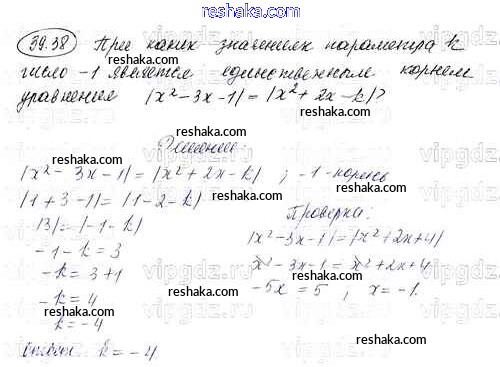 reshaka.com
39.38 При каких значениях параметра k
число -1 является единственным корнем
уравнения |x²-3x-1|=|x²+2x-k|?
Решение:
|x²-3x-1|=|x²+2x-k| ; -1-корень
|1+3-1|=|1-2-k|
|3|=|-1-k|
-1-k=3
-k=3+1
-k=4
k=-4
Ответ: k=-4
Проверка:
|x²-3x-1|=|x²+2x+4|
x²-3x-1=x²+2x+4
-5x=5 ; x=-1.
reshaka.com
reshaka.com
reshaka.com
reshaka.com
reshaka.com
reshaka.com
reshaka.com
reshaka.com
reshaka.com
reshaka.com
reshaka.com
vipgdz.ru
vipgdz.ru
vipgdz.ru
vipgdz.ru